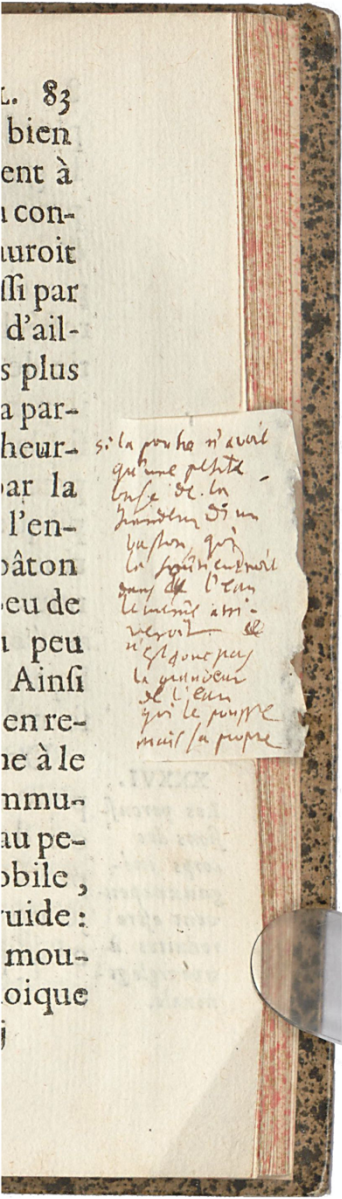 L. 83
bien
ent à
con-
uroit
ssi par
d'ail-
s plus
a par-
heur-
par la
l'en-
bâton
eu de
peu
Ainsi
en re-
ne à le
mmu-
au pe-
obile,
uide:
mou-
oique
si la poutre n'avoit
qu'une petite
de la
grandeur d'un
baston, qui
le soutiendroit
dans l'eau
le mesme arri-
veroit
n'est donc pas
la grandeur
de l'eau
qui le pousse
mais sa propre
XXXVI.